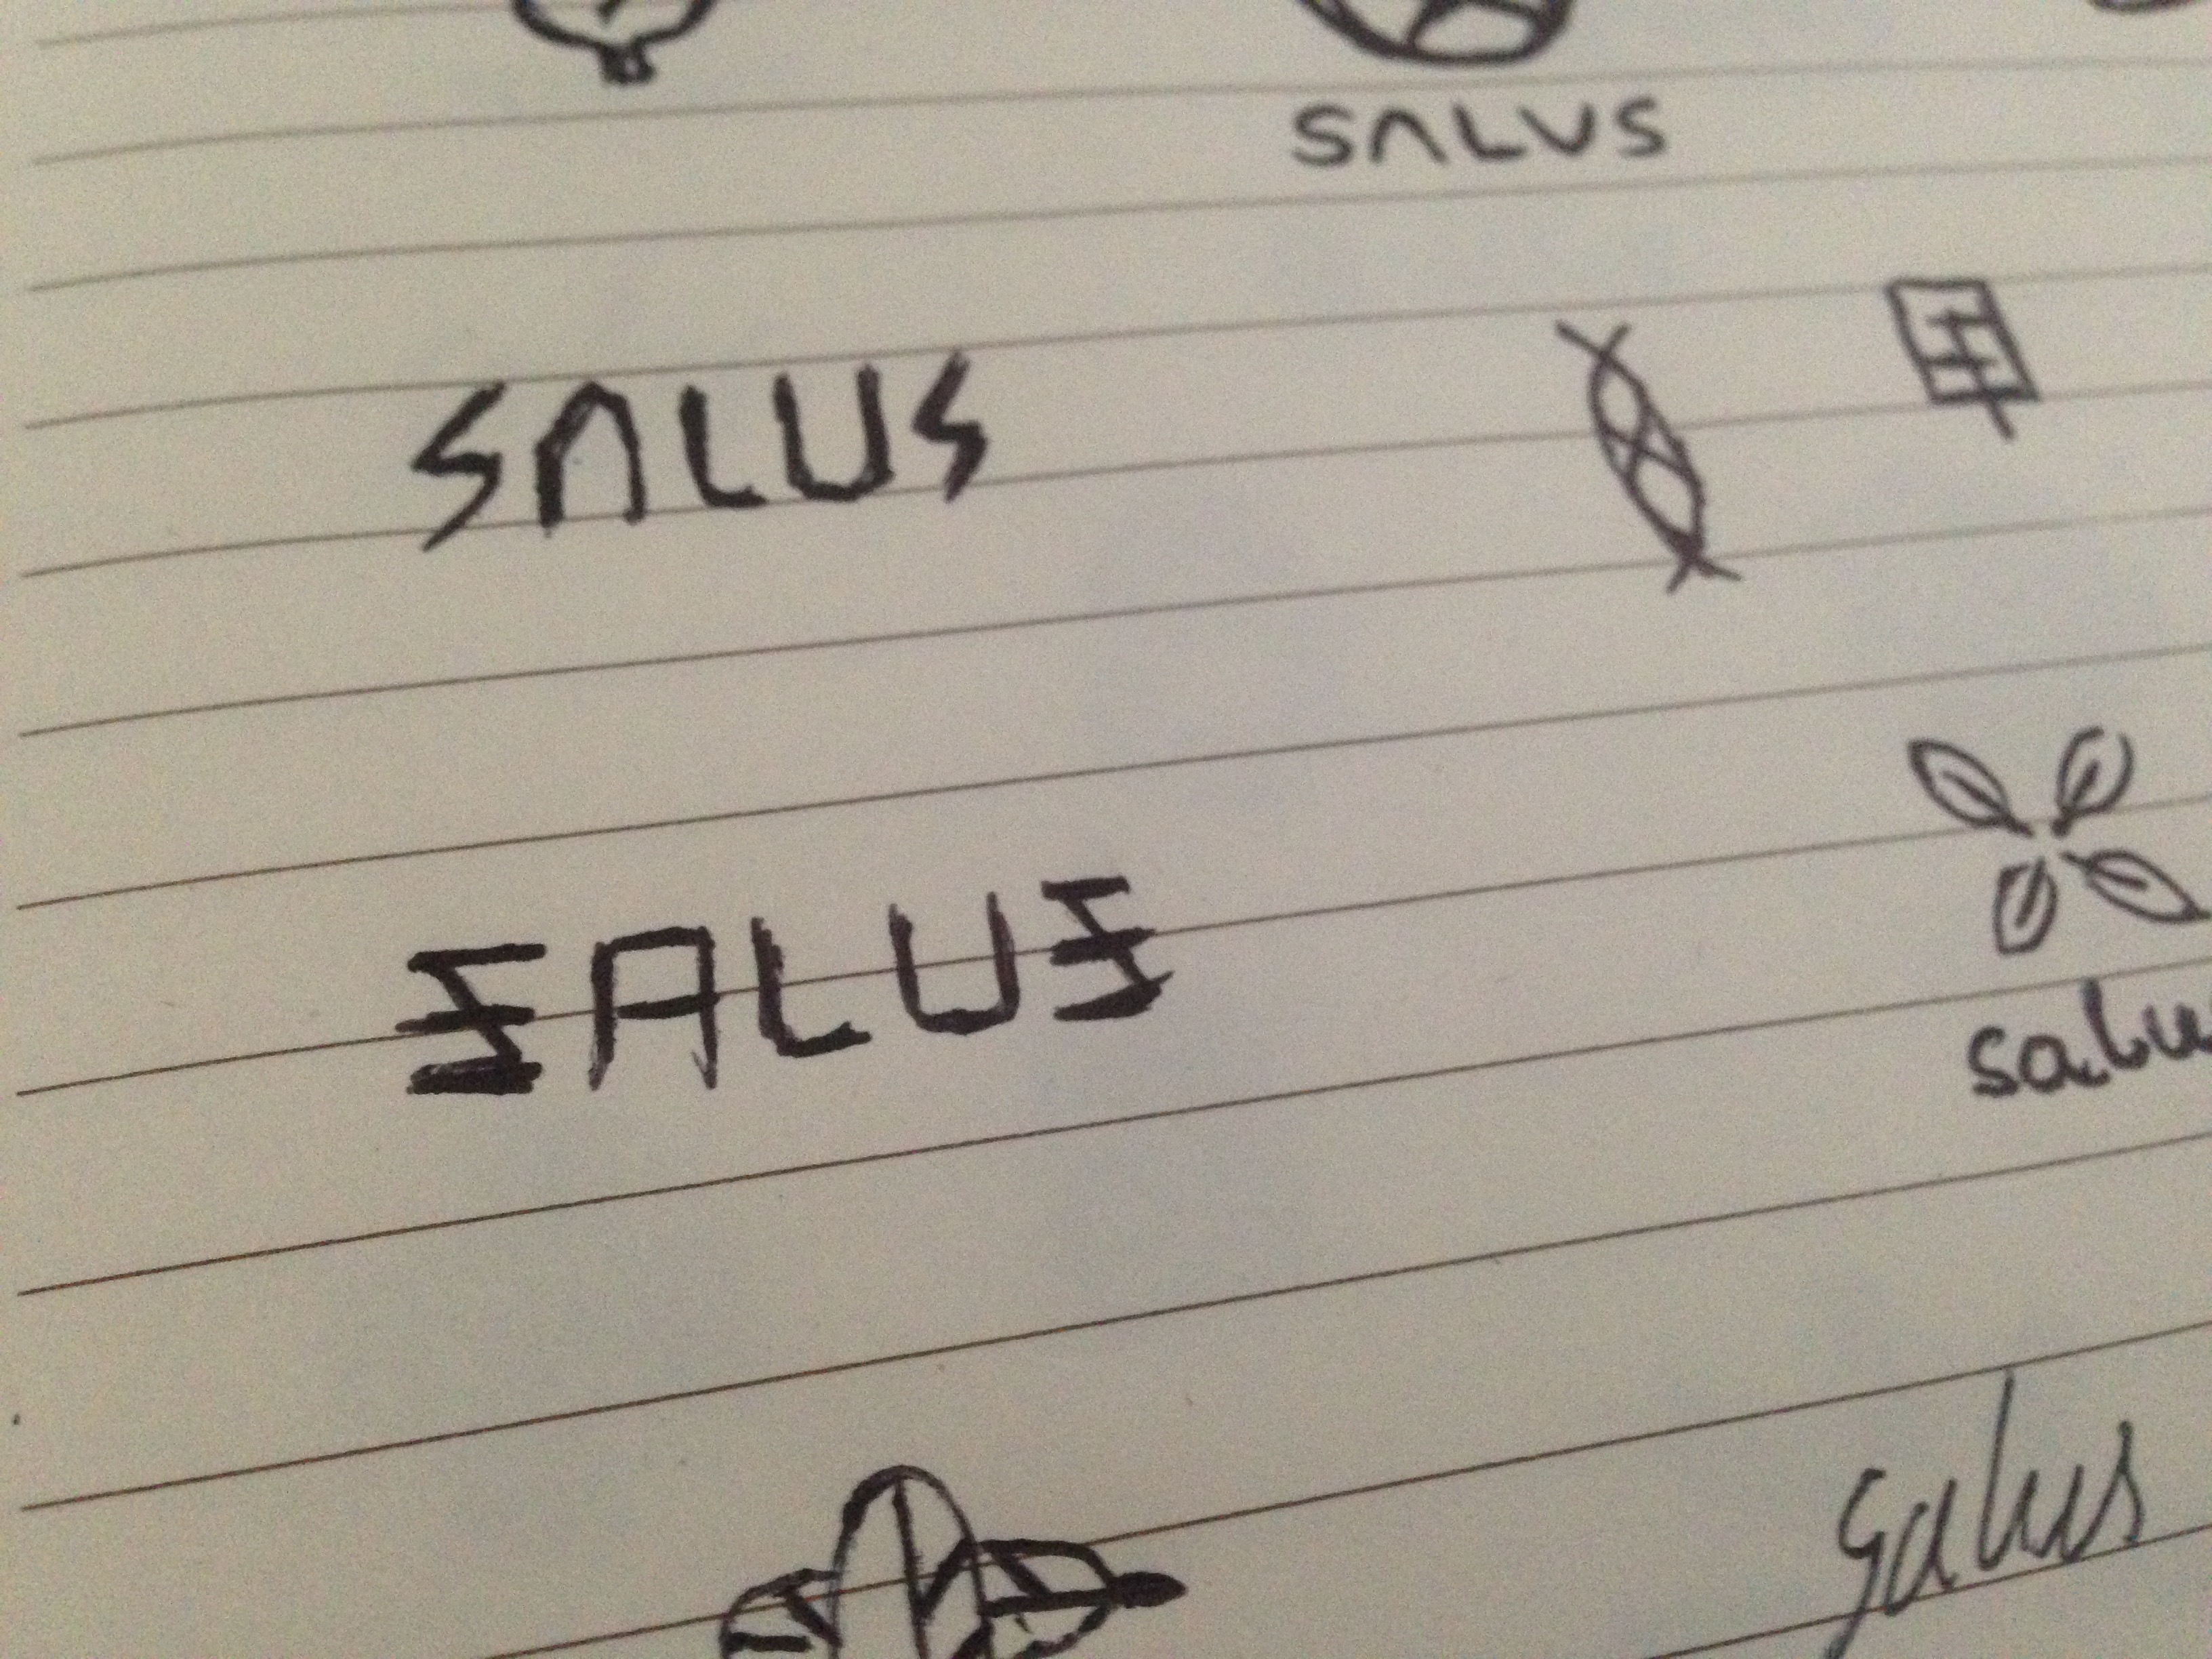 SALUS
SALUS
SALUS
salu
salus